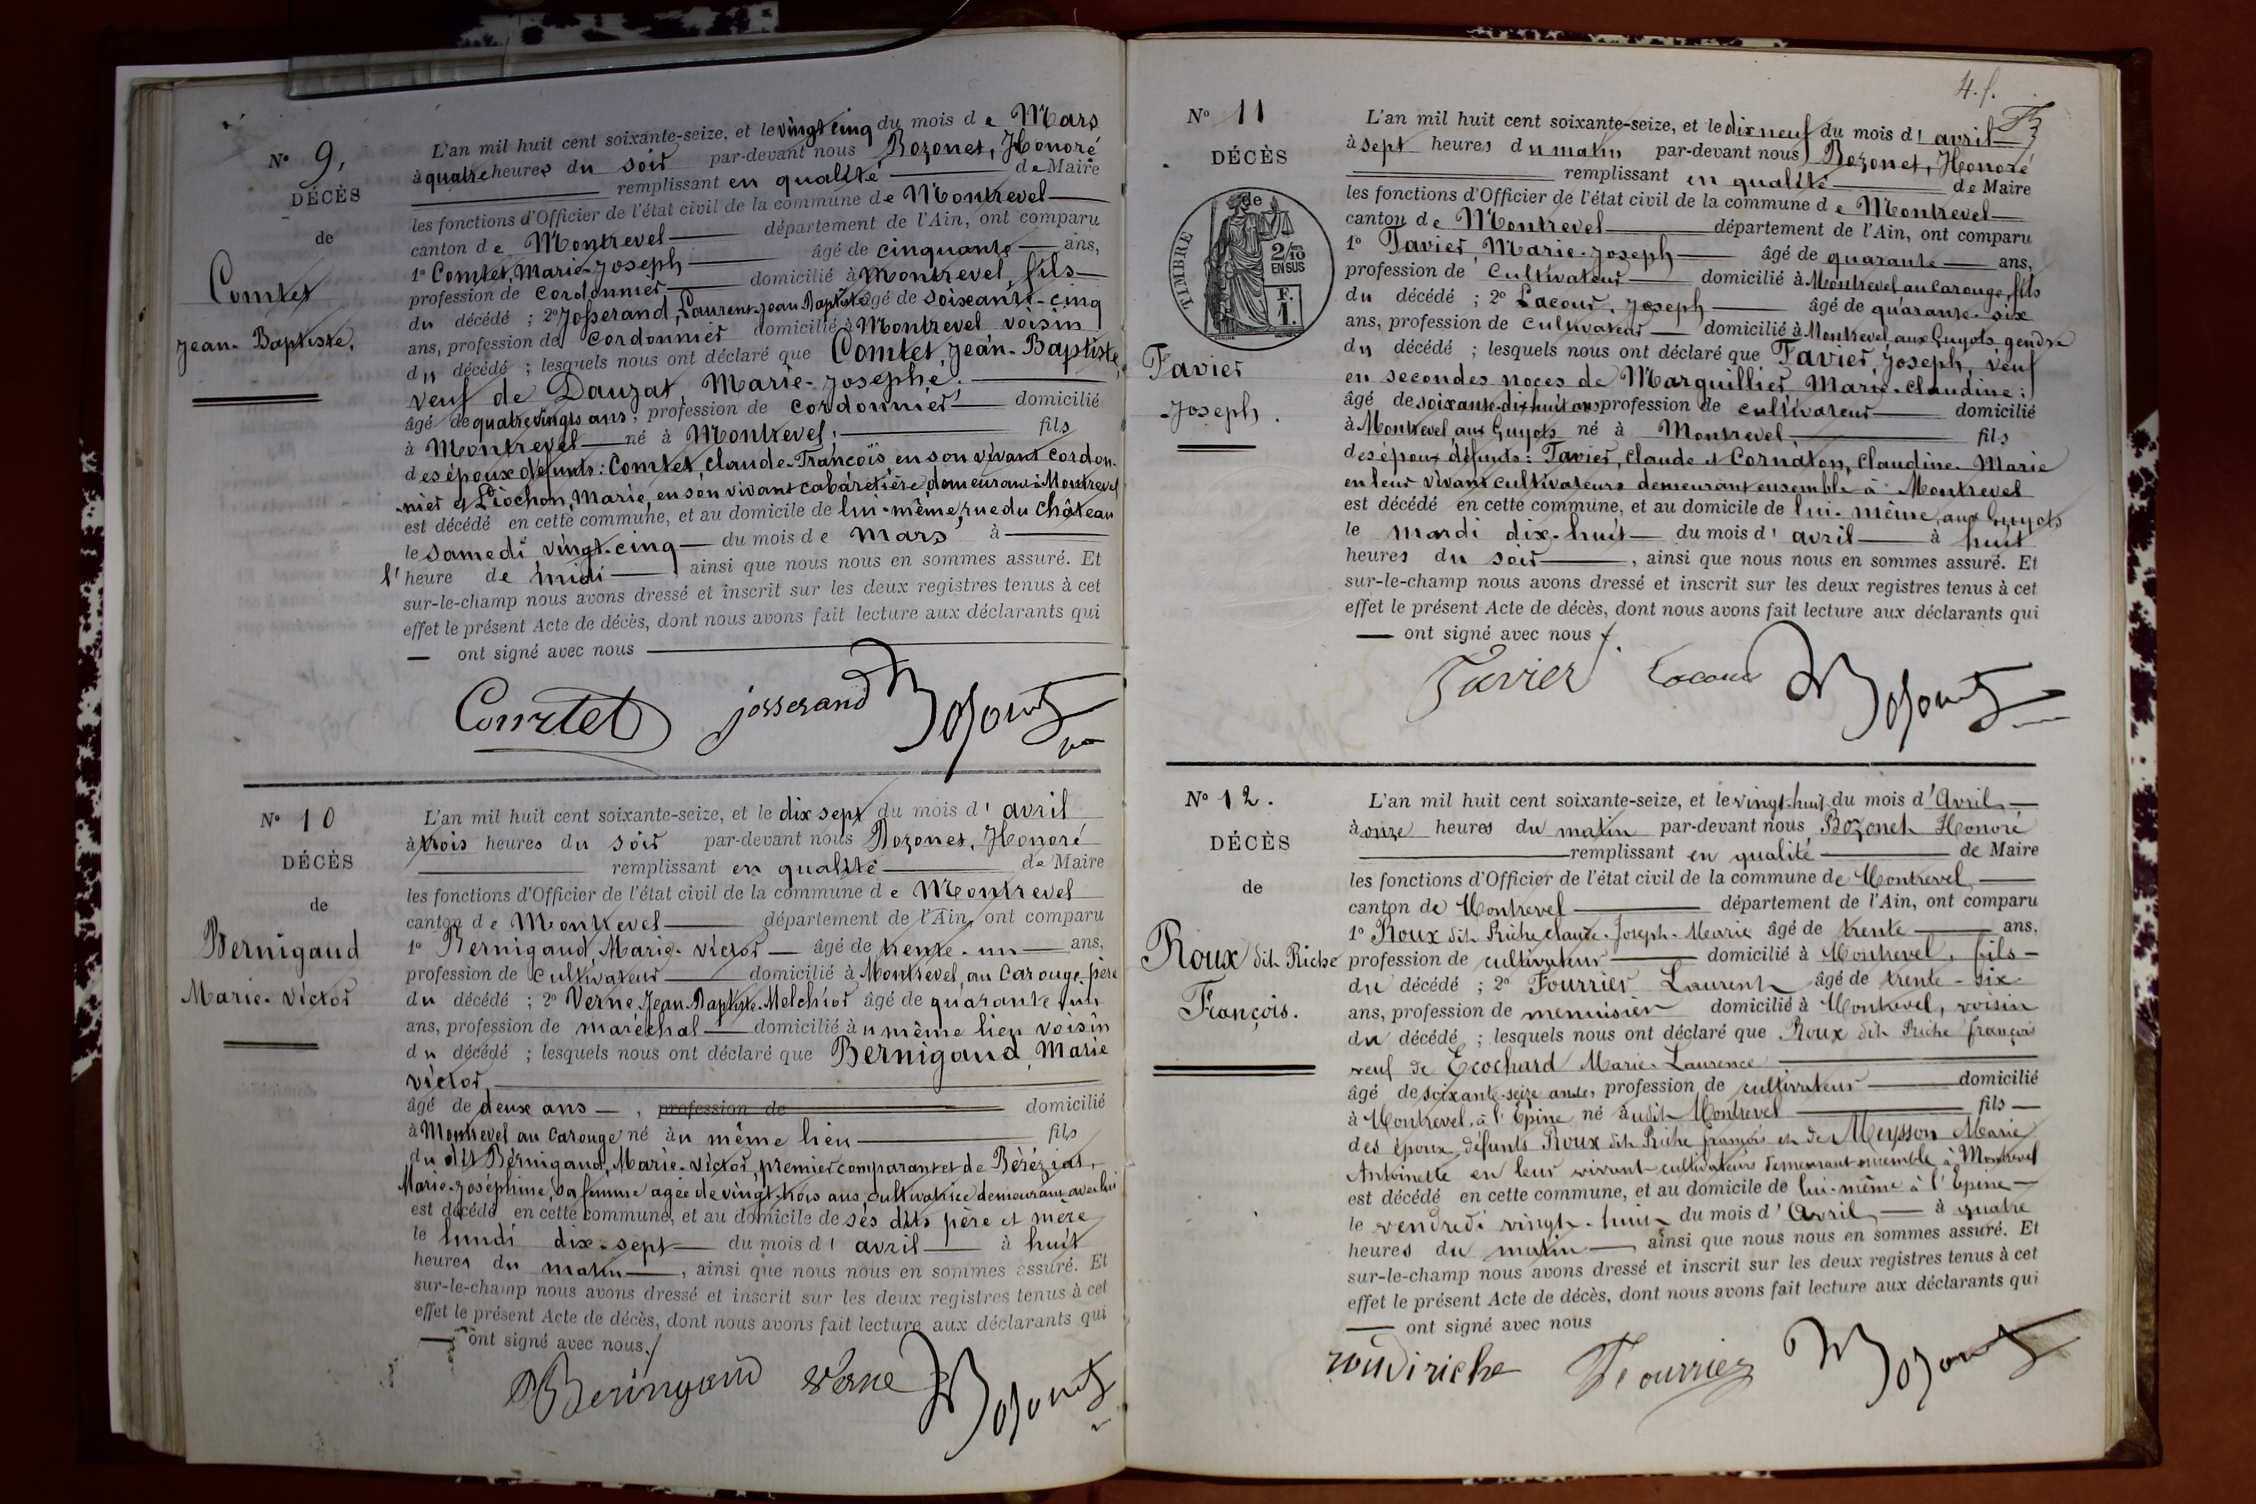 N° 9,
DÉCÈS
de
Comtet
Jean-Baptiste,
L'an mil huit cent soixante-seize, et le vingt cinq du mois de Mars
à quatre heures du soir par-devant nous Bozonet, Honoré
remplissant en qualité de Maire
les fonctions d'Officier de l'état civil de la commune de Montrevel
canton de Montrevel département de l'Ain, ont comparu
1° Comtet, Marie-Joseph âgé de cinquante ans,
profession de Cordonnier domicilié à Montrevel, fils
du décédé ; 2° Josserand, Laurent-Jean Baptiste âgé de soixante-cinq
ans, profession de Cordonnier domicilié à Montrevel voisin
du décédé ; lesquels nous ont déclaré que Comtet, Jean-Baptiste,
veuf de Dauzat, Marie-Josephe.
âgé de quatre vingts ans, profession de cordonnier domicilié
à Montrevel né à Montrevel, fils
des époux défunts : Comtet, Claude-François en son vivant cordon-
nier et Liochon, Marie, en son vivant cabaretière demeurant à Montrevel
est décédé en cette commune, et au domicile de lui-même, rue du Château
le samedi vingt-cinq du mois de mars à
l'heure de midi ainsi que nous nous en sommes assuré. Et
sur-le-champ nous avons dressé et inscrit sur les deux registres tenus à cet
effet le présent Acte de décès, dont nous avons fait lecture aux déclarants qui
ont signé avec nous
Comtet josserand Bozonet
N° 10
DÉCÈS
de
Bernigaud
Marie-Victor
L'an mil huit cent soixante-seize, et le dix sept du mois d'avril
à trois heures du soir par-devant nous Bozonet, Honoré
remplissant en qualité de Maire
les fonctions d'Officier de l'état civil de la commune de Montrevel
canton de Montrevel département de l'Ain, ont comparu
1° Bernigaud, Marie-Victor âgé de trente-un ans,
profession de Cultivateur domicilié à Montrevel, au Carouge père
du décédé ; 2° Verne, Jean-Baptiste-Melchior âgé de quarante un
ans, profession de maréchal domicilié àu même lieu voisin
du décédé ; lesquels nous ont déclaré que Bernigaud, Marie
victor,
âgé de deux ans, profession de domicilié
à Montrevel au Carouge né àu même lieu fils
du dit Bernigaud, Marie-victor, premier comparant et de Béréziat,
Marie-Joséphine, sa femme agée de vingt-trois ans, cultivatrice demeurant avec lui
est décédé en cette commune, et au domicile de ses dits père et mère
le lundi dix-sept du mois d'avril à huit
heures du matin, ainsi que nous nous en sommes assuré. Et
sur-le-champ nous avons dressé et inscrit sur les deux registres tenus à cet
effet le présent Acte de décès, dont nous avons fait lecture aux déclarants qui
ont signé avec nous.
Bernigaud Verne Bozonet
4. f.
N° 11
DÉCÈS
de
TIMBRE
2/10
EN SUS
F.
1.
Favier
Joseph.
L'an mil huit cent soixante-seize, et le dix neuf du mois d'avril
à sept heures du matin par-devant nous Bozonet, Honoré
remplissant en qualité de Maire
les fonctions d'Officier de l'état civil de la commune de Montrevel
canton de Montrevel département de l'Ain, ont comparu
1° Favier, Marie-Joseph âgé de quarante ans,
profession de Cultivateur domicilié à Montrevel au Carouge, fils
du décédé ; 2° Lacour, Joseph âgé de quarante-six
ans, profession de cultivateur domicilié à Montrevel aux Guyots gendre
du décédé ; lesquels nous ont déclaré que Favier, Joseph, veuf
en secondes noces de Marguillier, Marie-Claudine ;
âgé de soixante-dix huit ans profession de cultivateur domicilié
à Montrevel, aux Guyots né à Montrevel, fils
des époux défunts : Favier, Claude et Cornaton, Claudine-Marie
en leur vivant cultivateurs demeurant ensemble à Montrevel
est décédé en cette commune, et au domicile de lui-même, aux Guyots
le mardi dix-huit du mois d'avril à huit
heures du soir, ainsi que nous nous en sommes assuré. Et
sur-le-champ nous avons dressé et inscrit sur les deux registres tenus à cet
effet le présent Acte de décès, dont nous avons fait lecture aux déclarants qui
ont signé avec nous.
Favier Lacour Bozonet
N° 12.
DÉCÈS
de
Roux dit Riche
François.
L'an mil huit cent soixante-seize, et le vingt-huit du mois d'Avril
à onze heures du matin par-devant nous Bozonet Honoré
remplissant en qualité de Maire
les fonctions d'Officier de l'état civil de la commune de Montrevel
canton de Montrevel département de l'Ain, ont comparu
1° Roux dit Riche Claude-Joseph-Marie âgé de trente ans,
profession de cultivateur domicilié à Montrevel, fils
du décédé ; 2° Fourrier Laurent âgé de trente-six
ans, profession de menuisier domicilié à Montrevel, voisin
du décédé ; lesquels nous ont déclaré que Roux dit Riche françois
veuf de Ecochard Marie-Laurence
âgé de soixante-seize années, profession de cultivateur domicilié
à Montrevel, à l'Épine né àudit Montrevel fils
des époux défunts Roux dit Riche françois et de Meysson Marie
Antoinette en leur vivant cultivateurs demeurant ensemble à Montrevel
est décédé en cette commune, et au domicile de lui-même à l'Epine
le vendredi vingt-huit du mois d'Avril à quatre
heures du matin, ainsi que nous nous en sommes assuré. Et
sur-le-champ nous avons dressé et inscrit sur les deux registres tenus à cet
effet le présent Acte de décès, dont nous avons fait lecture aux déclarants qui
ont signé avec nous
roudiriche Fourrier Bozonet